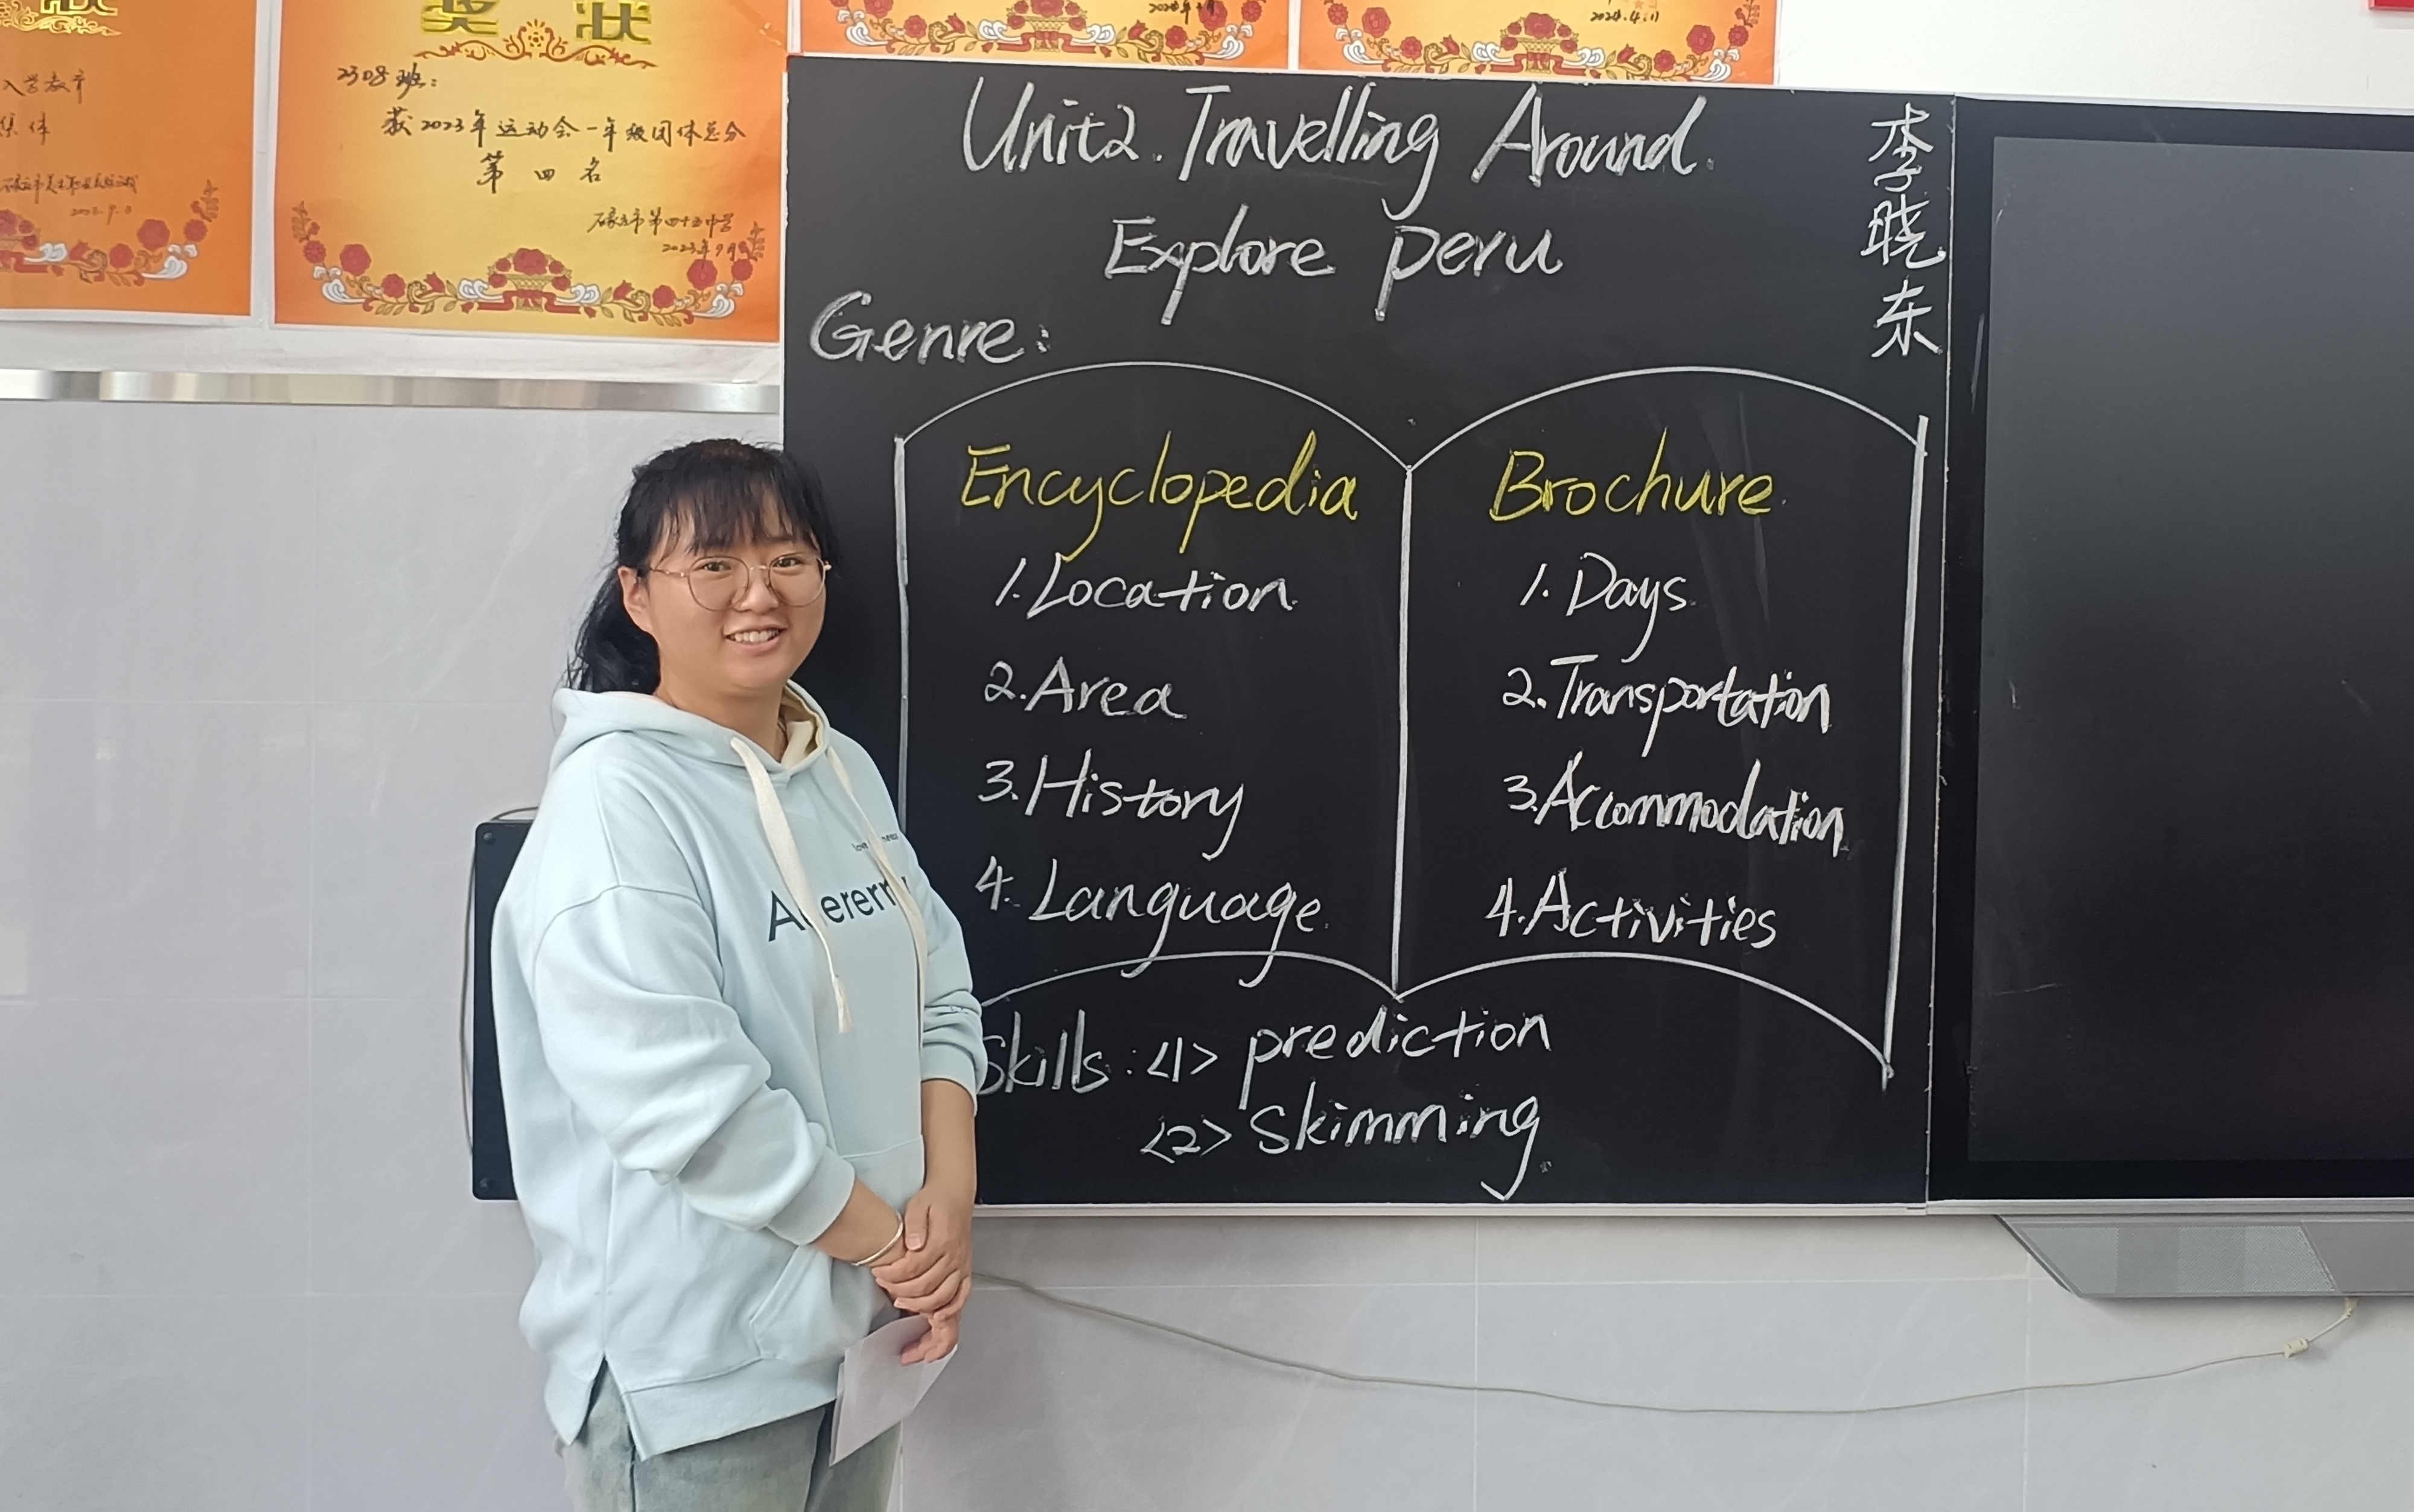 入学教育
集体
奖 状
2308班：
获2023年运动会一年级团体总分
第四名
石家庄市第四十五中学
2023年9月
2024.4.11
Unit2. Travelling Around.
Explore peru
李晓东
Genre:
Encyclopedia
1. Location
2. Area
3. History
4. Language.
Brochure.
1. Days
2. Transportation
3. Accommodation
4. Activities
Skills: <1> prediction
<2> skimming.